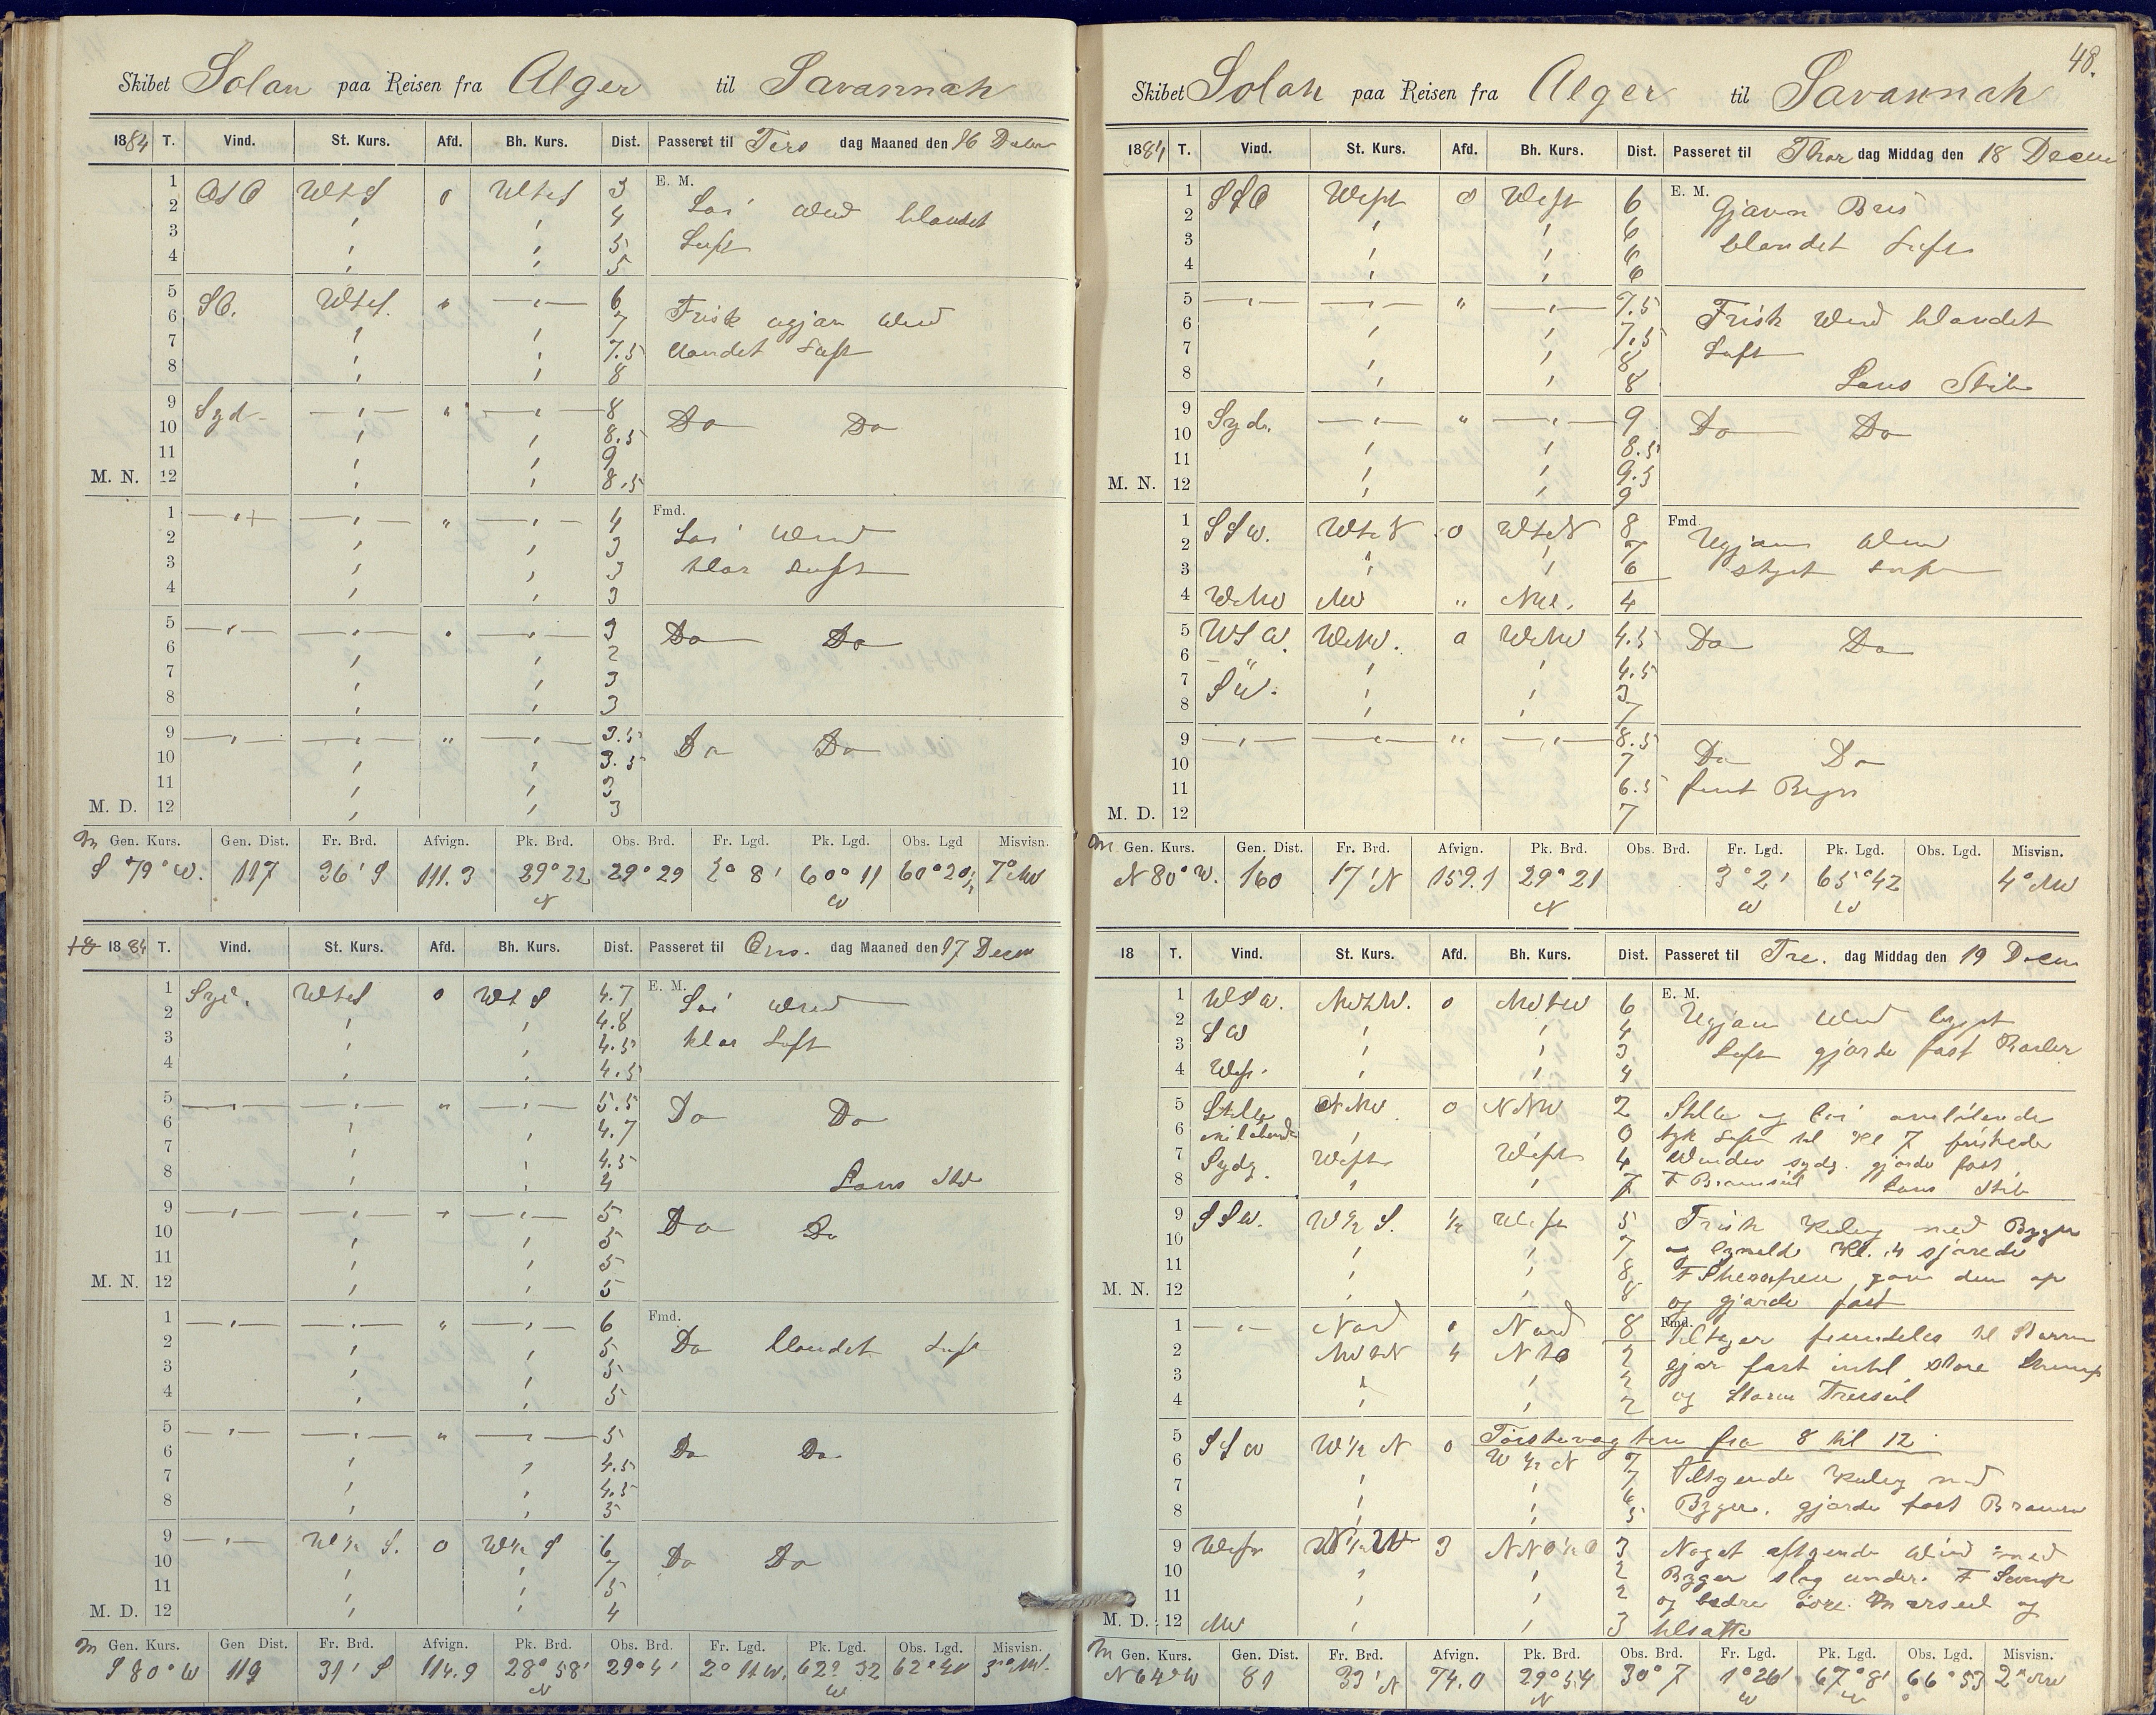 Skibet Solan paa Reisen fra Alger til Savannah
1884 T. Vind. St. Kurs. Afd. Bh. Kurs. Dist. Passeret til Tirs dag Maaned den 16 Decbr
E. M.
1 OSO WtS 0 WtS 3
2 4 Løi Wind blandet
3 5 Luft
4 5
5 SO. WtS. " 6
6 7 Frisk ugjæn Wind
7 7.5 blandet Luft
8 8
9 Syd " 8
10 8.5 Do Do
11 9
M. N. 12 8.5
Fmd.
1 " 4
2 3 Løi Wind
3 3 klar Luft
4 3
5 3
6 2 Do Do
7 3
8 3
9 " 3.5
10 3.5 Do Do
11 3
M. D. 12 3
Gen. Kurs. Gen. Dist. Fr. Brd. Afvign. Pk. Brd. Obs. Brd. Fr. Lgd. Pk. Lgd. Obs. Lgd Misvisn.
S 79° W. 117 26' S 111.3 29° 22 N 29° 29 2° 8' 60° 11 W 60° 20 7° NW
1884 T. Vind. St. Kurs. Afd. Bh. Kurs. Dist. Passeret til Ons. dag Maaned den 17 Decem
E. M.
1 Syd. WtS 0 WtS 4.7 Løi Wind
2 4.8
3 4.5 klar Luft
4 4.5
5 " 5.5 Do Do
6 4.7
7 4.5
8 4 Lans Stib
9 5 Do Do
10 5
11 5
M. N. 12 5
Fmd.
1 " 6 Do blandet Luft
2 5
3 5
4 5
5 " 5
6 4.5 Do Do
7 4.5
8 5
9 W½ S. 0 W½ S 6
10 7 Do Do
11 5
M. D. 12 4
Gen. Kurs. Gen Dist. Fr. Brd. Afvign. Pk. Brd. Obs. Brd. Fr. Lgd. Pk. Lgd. Obs. Lgd. Misvisn.
S 80° W 119 31' S 114.9 28° 58' N 29° 4' 2° 11 W. 62° 32 W 62° 40 3° NW.
48.
Skibet Solan paa Reisen fra Alger til Savannah
1884 T. Vind. St. Kurs. Afd. Bh. Kurs. Dist. Passeret til Thor dag Middag den 18 Decem
E. M.
1 SSO West 0 West 6 Gjævn Bris
2 6
3 6 blandet Luft
4 6
5 " 7.5 Frisk Wind blandet
6 7.5
7 8 Luft
8 8 Lans Stib
9 Syd. " 9 Do Do
10 8.5
11 9.5
M. N. 12 9
Fmd
1 SSW. WtN 0 WtN 8 Ugjævn Wind
2 7
3 6 skyet Luft
4 WNW NW " NW. 4
5 WSW. WNW. 0 WNW 4.5 Do Do
6 " 4.5
7 SW. 3
8 7
9 " 8.5
10 7 Do Do
11 6.5 fint Regn
M. D. 12 7
Gen. Kurs. Gen. Dist. Fr. Brd. Afvign. Pk. Brd. Obs. Brd. Fr. Lgd. Pk. Lgd. Obs. Lgd. Misvisn.
N 80° W. 160 17' N 159.1 29° 21 N 3° 2' W 65° 42 W 4° NW
18 T. Vind. St. Kurs. Afd. Bh. Kurs. Dist. Passeret til Fre. dag Middag den 19 Decem
E. M.
1 WSW. NWtW. 0 NWtW 6 Ugjævn Wind
2 SW 4
3 3 Luft gjorde fast
4 West. 4
5 Stille NNW 0 NNW 2 Stille og løi omløbende
6 omløbende 0 tyk Luft til Kl 7 friskede
7 Sydg. West West 4 Winden sydg. gjorde fast
8 7 F Bramseil Lans Stib
9 SSW. W½ S. ½ West 5 Frisk Kuling med Byger
10 7 Kl.
11 8
M. N. 12 8 og gjorde fast
Fmd.
1 Nord 0 Nord 8 Tiltager fremdeles til Storm
2 NWtN 4 NtO 2 gjør fast intil store
3 2
4 2 og Storm
5 SSW W½ N 0 Førstevagten fra 8 til 12
6 W ½ N 7 Tiltagende Kuling med
7 7
8 5 Byger. gjorde fast
9 West 3 NNO½O 3 Noget aftagende Wind med
10 2 Byger slog under.
11 2 og
M. D. 12 NW 3 tilsatte
Gen. Kurs. Gen. Dist. Fr. Brd. Afvign. Pk. Brd. Obs. Brd. Fr. Lgd. Pk. Lgd. Obs. Lgd. Misvisn.
N 64° W 81 33' N 74.0 29° 54 N 30° 7 1° 26' W 67° 8' W 66° 53 2° NW